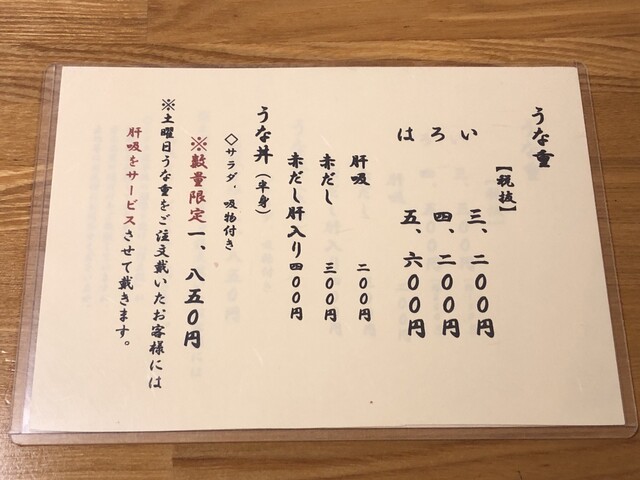 うな重
【税抜】
い 三、二〇〇円
ろ 四、二〇〇円
は 五、六〇〇円
肝吸 二〇〇円
赤だし 三〇〇円
赤だし肝入り 四〇〇円
うな丼（半身）
◇サラダ、吸物付き
※数量限定一、八五〇円
※土曜日うな重をご注文戴いたお客様には
肝吸をサービスさせて戴きます。